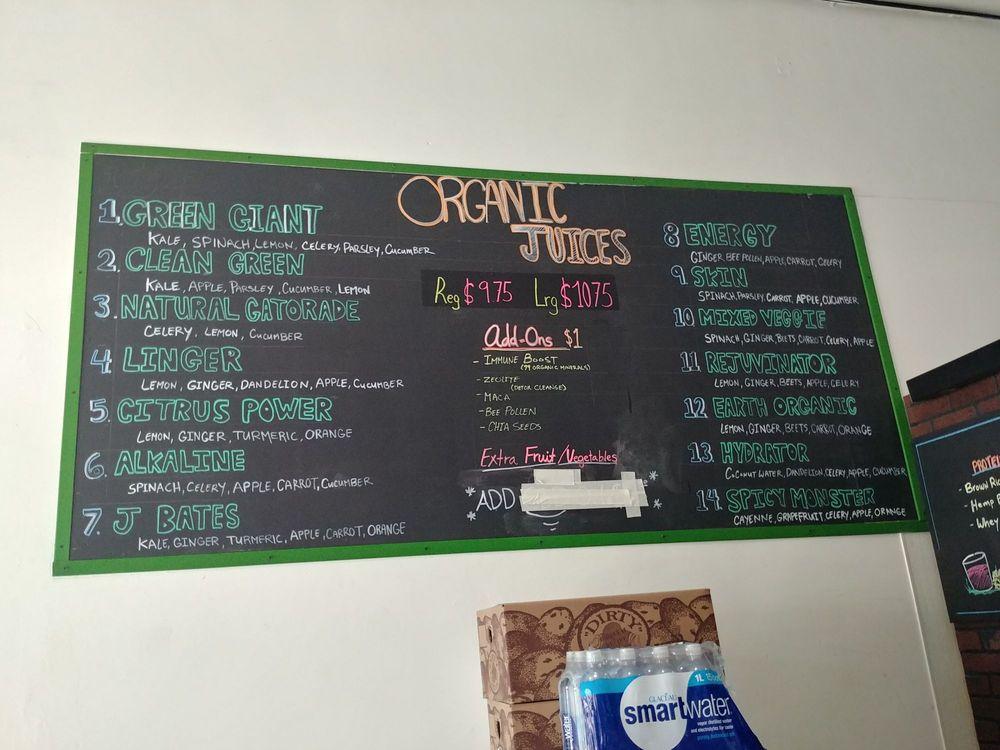 ORGANIC
JUICES
Reg $9.75 Lrg $1075
Add-Ons $1
- IMMUNE BOOST
(99 ORGANIC MINERALS)
- ZEOLITE
(DETOX CLEANSE)
- MACA
- BEE POLLEN
- CHIA SEEDS
Extra Fruit/Vegetables
* ADD *
1. GREEN GIANT
KALE, SPINACH, LEMON, CELERY, PARSLEY, CUCUMBER
2. CLEAN GREEN
KALE, APPLE, PARSLEY, CUCUMBER, LEMON
3. NATURAL GATORADE
CELERY, LEMON, CUCUMBER
4 LINGER
LEMON, GINGER, DANDELION, APPLE, CUCUMBER
5. CITRUS POWER
LEMON, GINGER, TURMERIC, ORANGE
6. ALKALINE
SPINACH, CELERY, APPLE, CARROT, CUCUMBER
7. J BATES
KALE, GINGER, TURMERIC, APPLE, CARROT, ORANGE
8 ENERGY
GINGER, BEE POLLEN, APPLE, CARROT, CELERY
9 SKIN
SPINACH, PARSLEY, CARROT, APPLE, CUCUMBER
10 MIXED VEGGIE
SPINACH, GINGER, BEETS, CARROT, CELERY, APPLE
11 REJUVINATOR
LEMON, GINGER, BEETS, APPLE, CELERY
12 EARTH ORGANIC
LEMON, GINGER, BEETS, CARROT, ORANGE
13 HYDRATOR
COCONUT WATER, DANDELION, CELERY, APPLE, CUCUMBER
14 SPICY MONSTER
CAYENNE, GRAPEFRUIT, CELERY, APPLE, ORANGE
PROTEI
- Brown Ric
- Hemp
- Whey
DIRTY
1L
GLACÉAU
smartwater
vapor distilled water
and electrolytes for taste